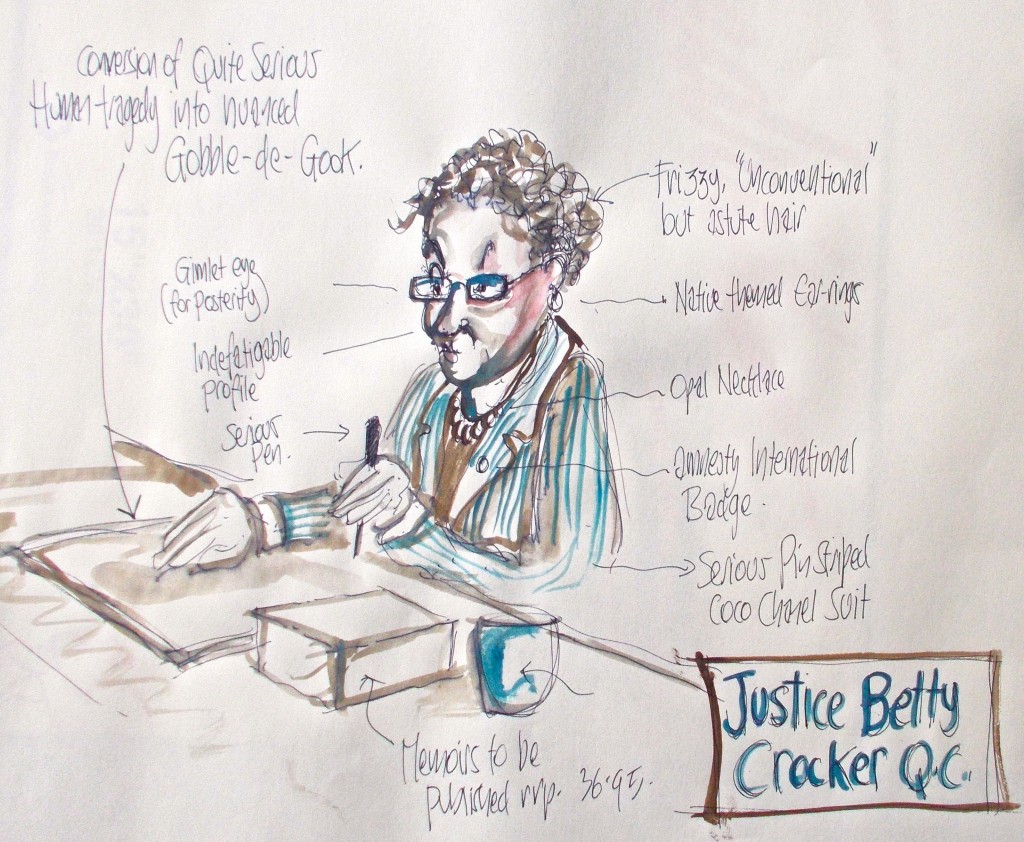 Conversion of Quite Serious
Human tragedy into nuanced
Gobble-de-Gook.
Frizzy, "Unconventional"
but astute hair
Gimlet eye
(for Posterity)
Native themed Ear-rings
Indefatigable
profile
Opal Necklace
Serious
Pen.
Amnesty International
Badge.
Serious Pin Striped
Coco Chanel Suit
Memoirs to be
published rrp. 36.95.
Justice Betty
Crocker Q.C.